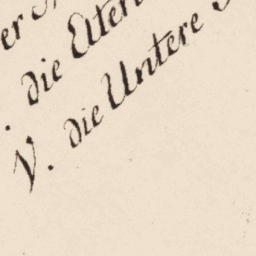 er
. die Eltern
V. die Untere